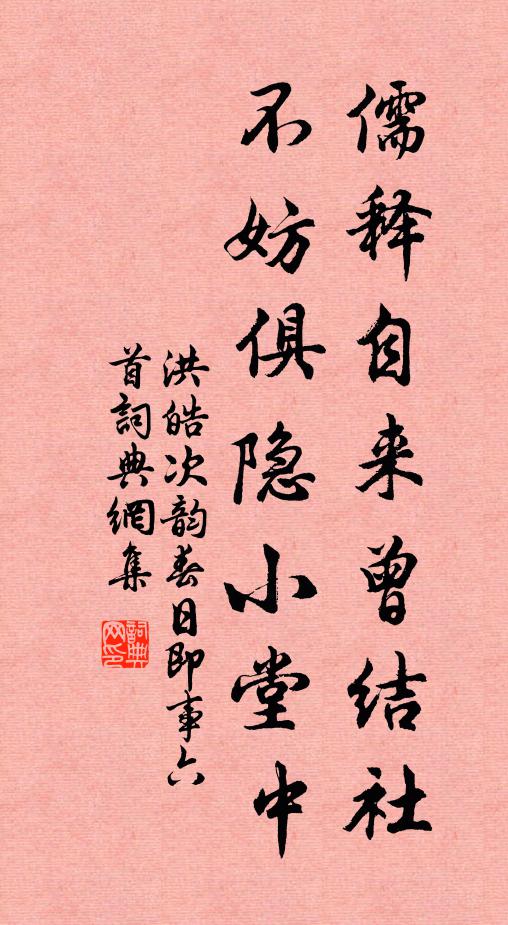 儒释自来曾结社
不妨俱隐小堂中
洪皓次韵春日即事六
首詞典網集
詞典
网印